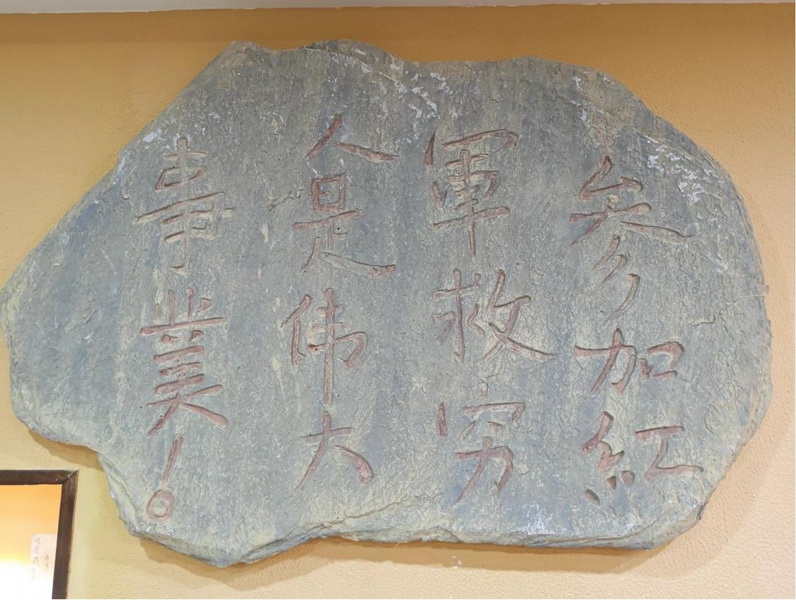 参加紅
軍救穷
人是伟大
事業！